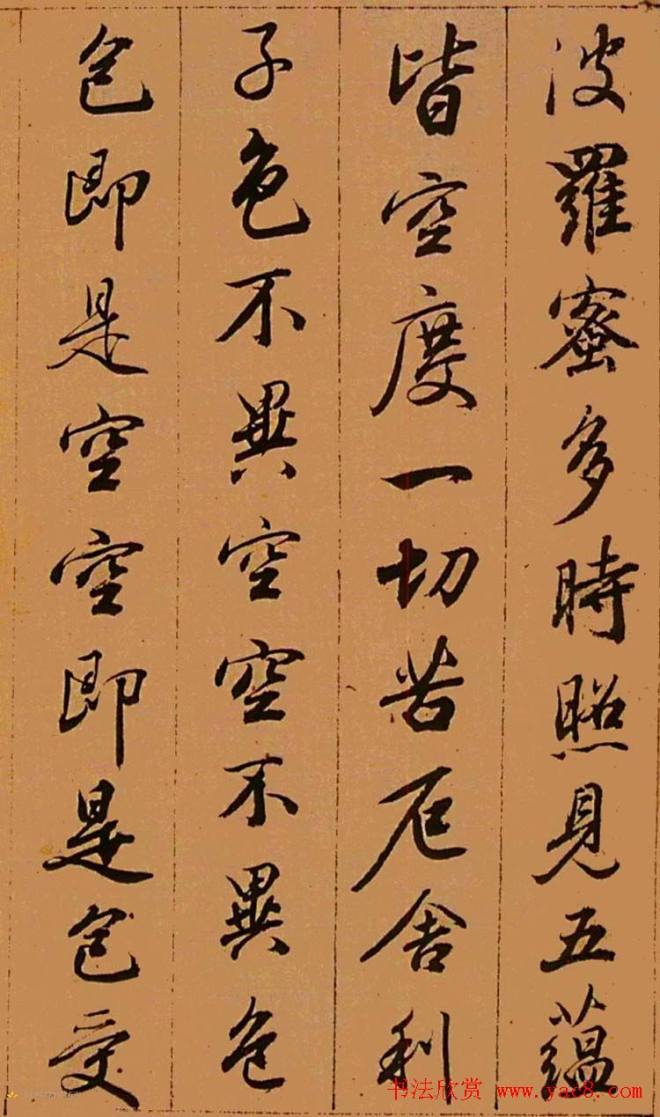 波羅蜜多時照見五蘊
皆空度一切苦厄舍利
子色不異空空不異色
色即是空空即是色受
书法欣赏 www.yac8.com